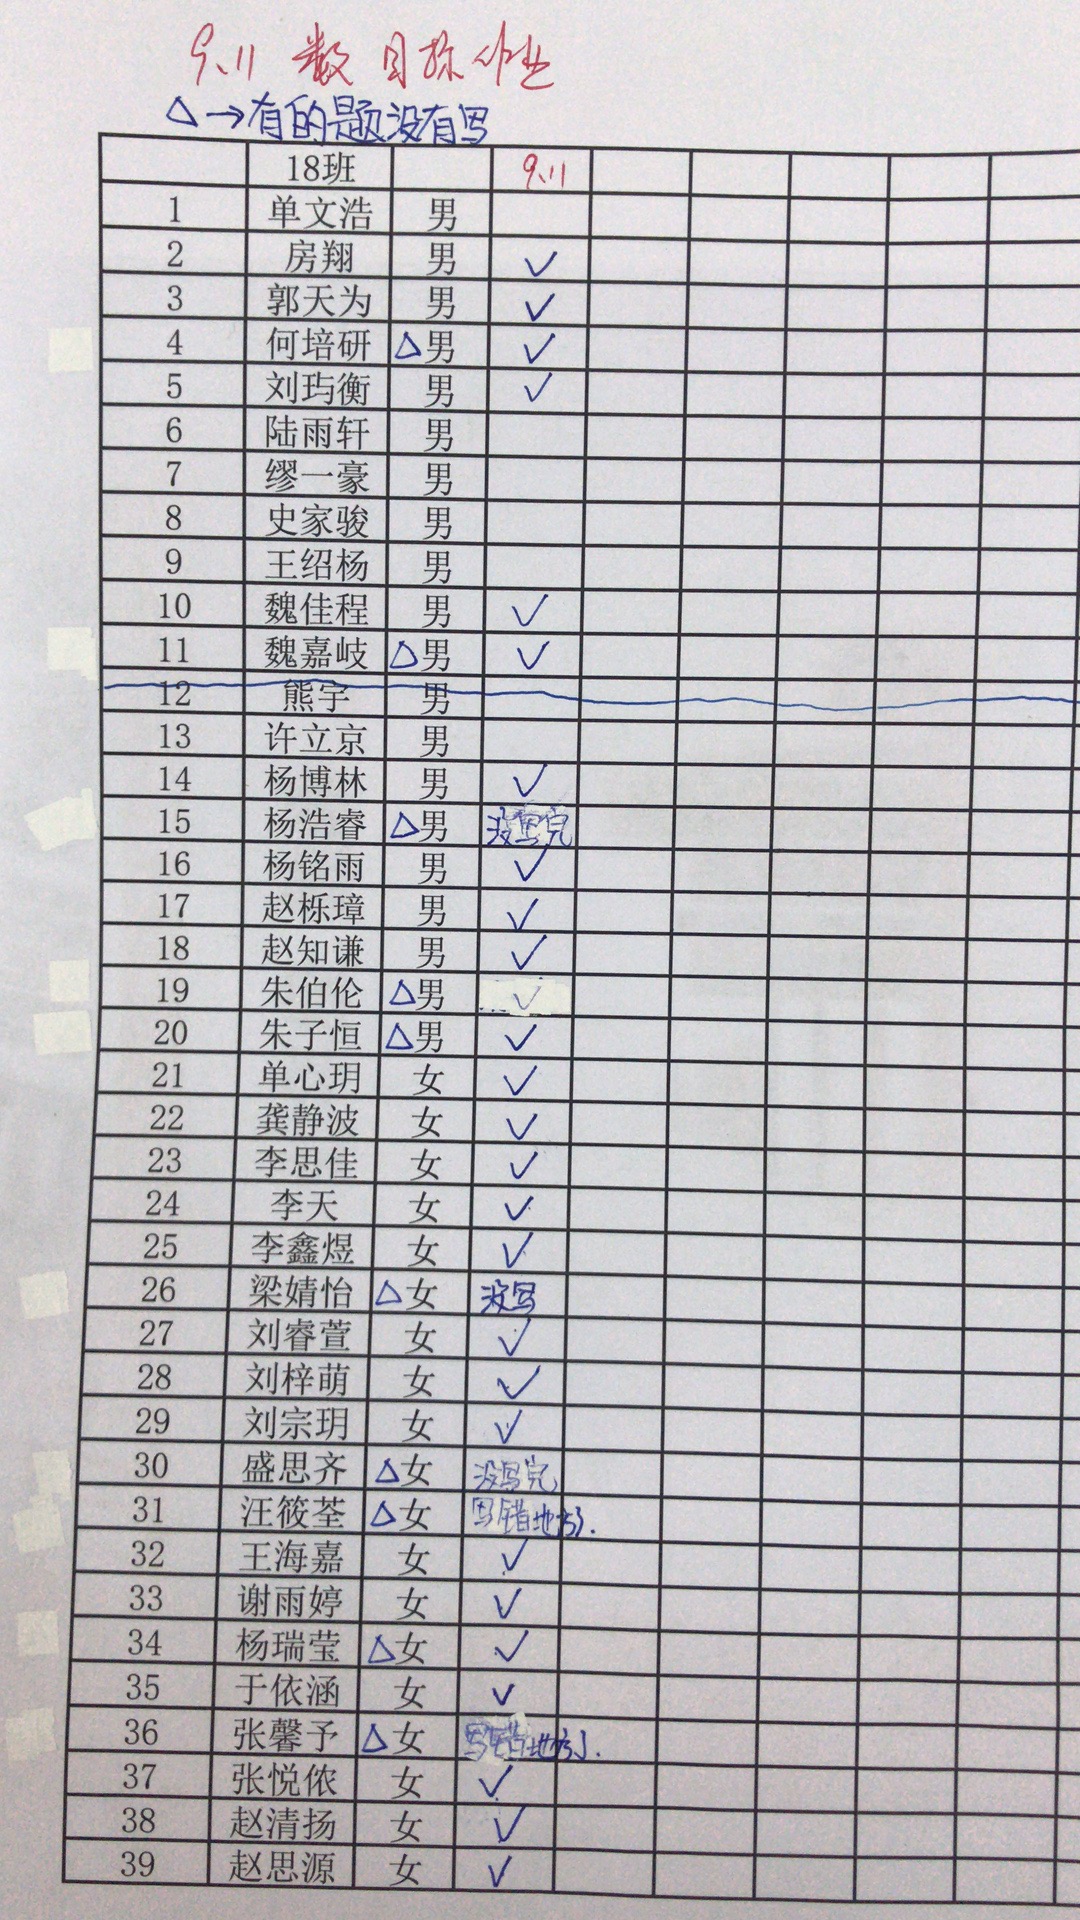 9.11 数 目标作业
△→有的题没有写
18班 9.11
1 单文浩 男
2 房翔 男 ✓
3 郭天为 男 ✓
4 何培研 △男 ✓
5 刘玙衡 男 ✓
6 陆雨轩 男
7 缪一豪 男
8 史家骏 男
9 王绍杨 男
10 魏佳程 男 ✓
11 魏嘉岐 △男 ✓
12 熊宇 男
13 许立京 男
14 杨博林 男 ✓
15 杨浩睿 △男 没写完
16 杨铭雨 男 ✓
17 赵栎璋 男 ✓
18 赵知谦 男 ✓
19 朱伯伦 △男 ✓
20 朱子恒 △男 ✓
21 单心玥 女 ✓
22 龚静波 女 ✓
23 李思佳 女 ✓
24 李天 女 ✓
25 李鑫煜 女 ✓
26 梁婧怡 △女 没写
27 刘睿萱 女 ✓
28 刘梓萌 女 ✓
29 刘宗玥 女 ✓
30 盛思齐 △女 没写完
31 汪筱荃 △女 写错地方.
32 王海嘉 女 ✓
33 谢雨婷 女 ✓
34 杨瑞莹 △女 ✓
35 于依涵 女 ✓
36 张馨予 △女 写错地方.
37 张悦侬 女 ✓
38 赵清扬 女 ✓
39 赵思源 女 ✓